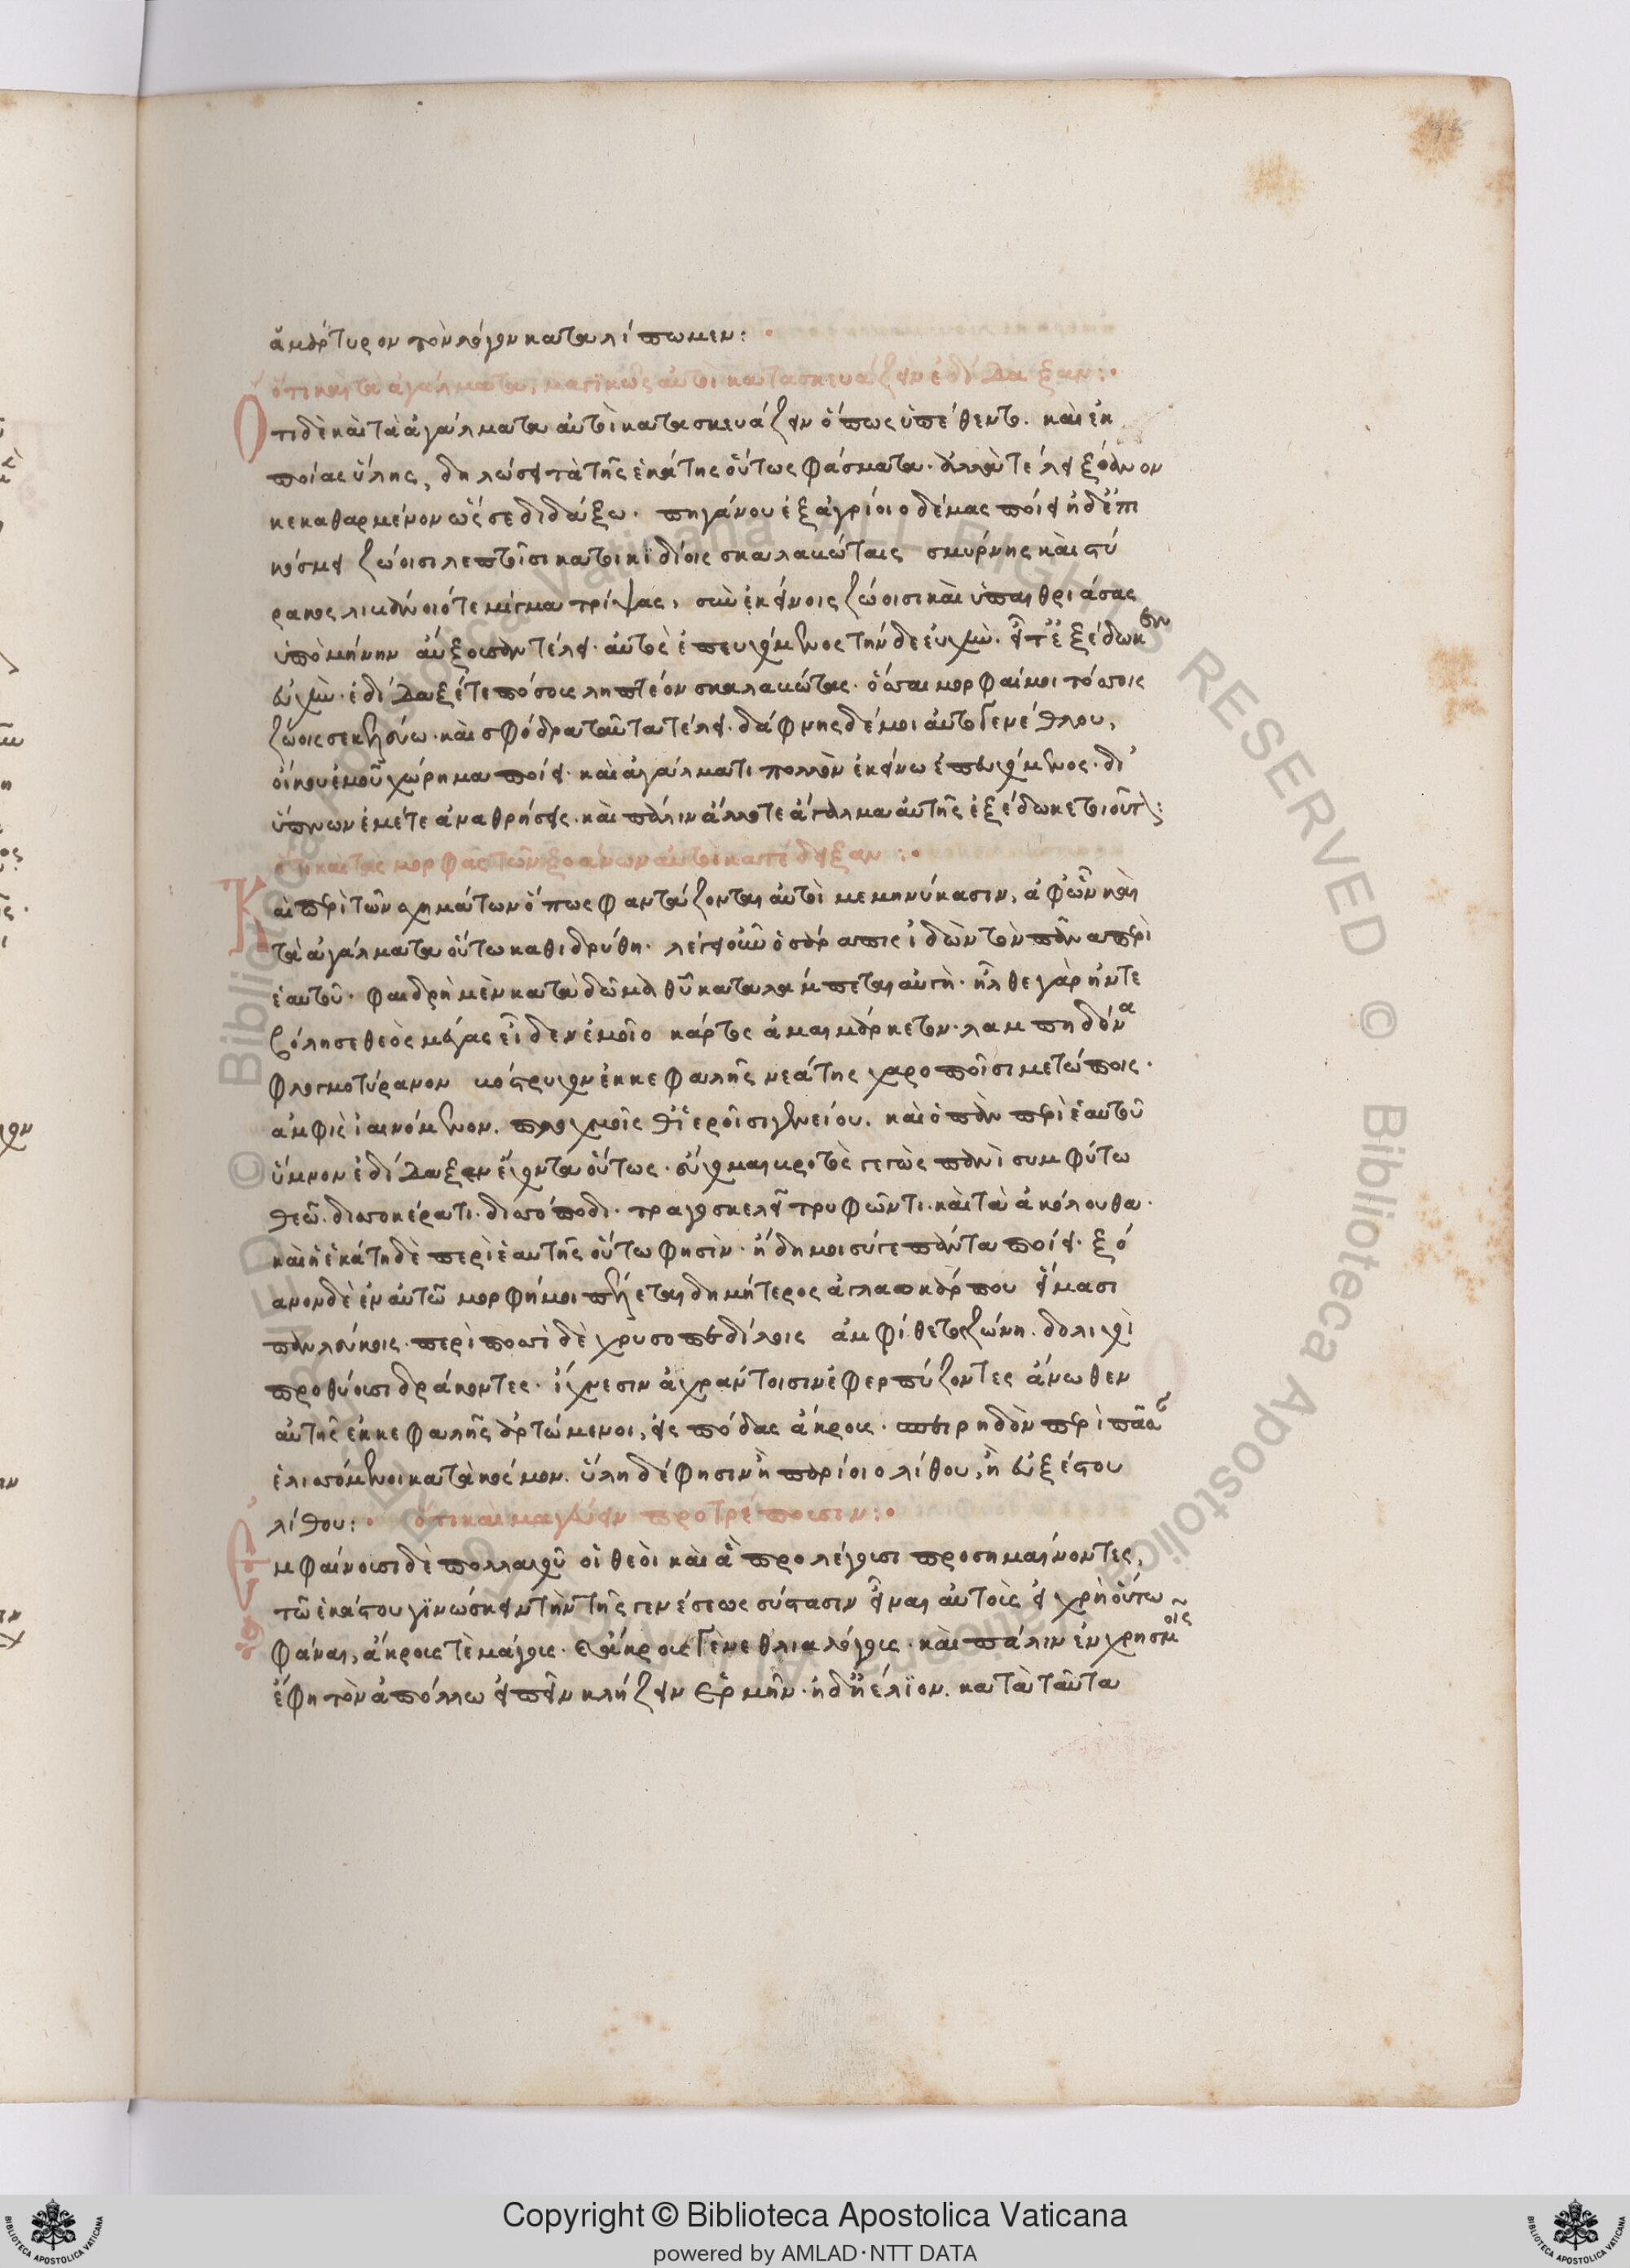 ἀμάρτυρον τὸν λόγον καταλίπωμεν:
ὅτι καὶ τὰ ἀγάλματα, μαγϊκῶς αὐτοὶ κατασκευάζειν ἐδίδαξαν:
Οτι δὲ καὶ τὰ ἀγάλματα αὐτοὶ κατασκευάζειν ὅπως ὑπέθεντο. καὶ ἐκ
ποίας ὕλης, δηλώσει τὰ τῆς ἑκάτης οὕτως φάσματα. ἀλλὰ τέλει ξόανον
κεκαθαρμένον ὥς σε διδάξω. πηγάνου ἐξ ἀγρίοιο δέμας ποίει ἠδ' ἔπι
κόσμει ζώοισι λεπτοῖσι κατοικϊδίοις σκαλακώταις σμύρνης καὶ στύ
ρακος λιβάνοιό τε μίγμα τρίψας, σὺν ἐκείνοις ζώοισι καὶ ὑπαιθριάσας
ὑπὸ μήνην αὔξουσαν τέλει. αὐτὸς ἐπευχόμενος τήνδε εὐχὴν. εἶτ' ἐξέδωκεν
εὐχὴν. ἐδίδαξέ τε πόσους ληπτέον σκαλακώτας. ὅσσαι μορφαί μοι τόσσοις
ζώοις σε κελεύω. καὶ σφόδρα ταῦτα τέλει. δάφνης δέ μοι αὐτογενέθλου,
οἴκου ἐμοῦ χώρημα ποίει. καὶ ἀγάλματι πολλὸν ἐκείνω ἐπευχόμενος. δι'
ὕπνων ἐμέ τε ἀναθρήσεις. καὶ πάλιν ἄλλοτε ἄγαλμα αὐτῆς ἐξέδωκε τοιοῦτον:
ὅτι καὶ τὰς μορφὰς τῶν ξοάνων αὐτοὶ καπέδειξαν:
Και περὶ τῶν σχημάτων ὅπως φαντάζονται αὐτοὶ μεμηνύκασιν, ἀφ' ὧν καὶ
τὰ ἀγάλματα οὕτω καθιδρύθη. λέγει οὖν ὁ σάραπις ἰδὼν τὸν πᾶνα περὶ
ἑαυτοῦ. φαιδρὴ μὲν κατὰ δῶμα θεοῦ καταλάμπεται αὐγὴ. ἦλθε γὰρ ἤντε
βόλησε θεὸς μέγας εἶδεν ἐμοῖο κάρτος ἀμαιμάρκετον. λαμπηδόνα
φλογμοτύρανον βόστρυχον ἐκ κεφαλῆς νεάτης χαροποῖσι μετώποις.
ἀμφὶς ἰαινόμενον. πλοχμοῖς θ' ἱεροῖσι γενείου. καὶ ὁ πὰν περὶ ἑαυτοῦ
ὕμνον ἐδίδαξεν ἔχοντα οὕτως. εὔχομαι βροτὸς γεγὼς πανὶ συμφύτω
θεῶ. δισσοκέρατι. δισσόποδι. τραγοσκελεῖ τρυφῶντι. καὶ τὰ ἀκόλουθα.
καὶ ἡ ἑκάτη δὲ περὶ ἑαυτῆς οὕτω φησὶν. ἤδη μοι σύ γε πάντα ποίει. ξό
ανον δὲ ἐν αὐτῶ μορφή μοι πέλεται δημήτερος ἀγλαοκάρπου εἵμασι
παλλεύκοις. περὶ ποσσὶ δὲ χρυσοπεδίλοις ἀμφὶ θετοζώνη. δολιχοὶ
προθύουσι δράκοντες. ἴχνεσιν ἀχράντοισιν ἐφερπύζοντες ἄνωθεν
αὐτῆς ἐκ κεφαλῆς ἀρτώμενοι, εἰς πόδας ἄκρους. σπειρηδὸν περὶ πᾶσαν
ἑλισσόμενοι κατὰ κόσμον. ὕλη δέ φησιν ἢ παρίοιο λίθου, ἢ εὐξέστου
λίθου: ὅτι καὶ μαγεύειν προτρέπουσιν:
Εμφαίνουσι δὲ πολλαχοῦ οἱ θεοὶ καὶ ἃ προλέγουσι προσημαίνοντες,
τῶ ἑκάστου γϊνώσκειν τὴν τῆς γενέσεως σύστασιν εἶναι αὐτοὺς εἰ χρὴ οὕτω
φάναι, ἄκρους τὲ μάγους. καὶ ἄκρους γενεθλιαλόγους. καὶ πάλιν ἐν χρησμοῖς
ἔφη τὸν ἀπόλλω εἰπεῖν κλήζειν ἑρμῆν. ἠδ' ἠέλϊον. κατὰ ταῦτα